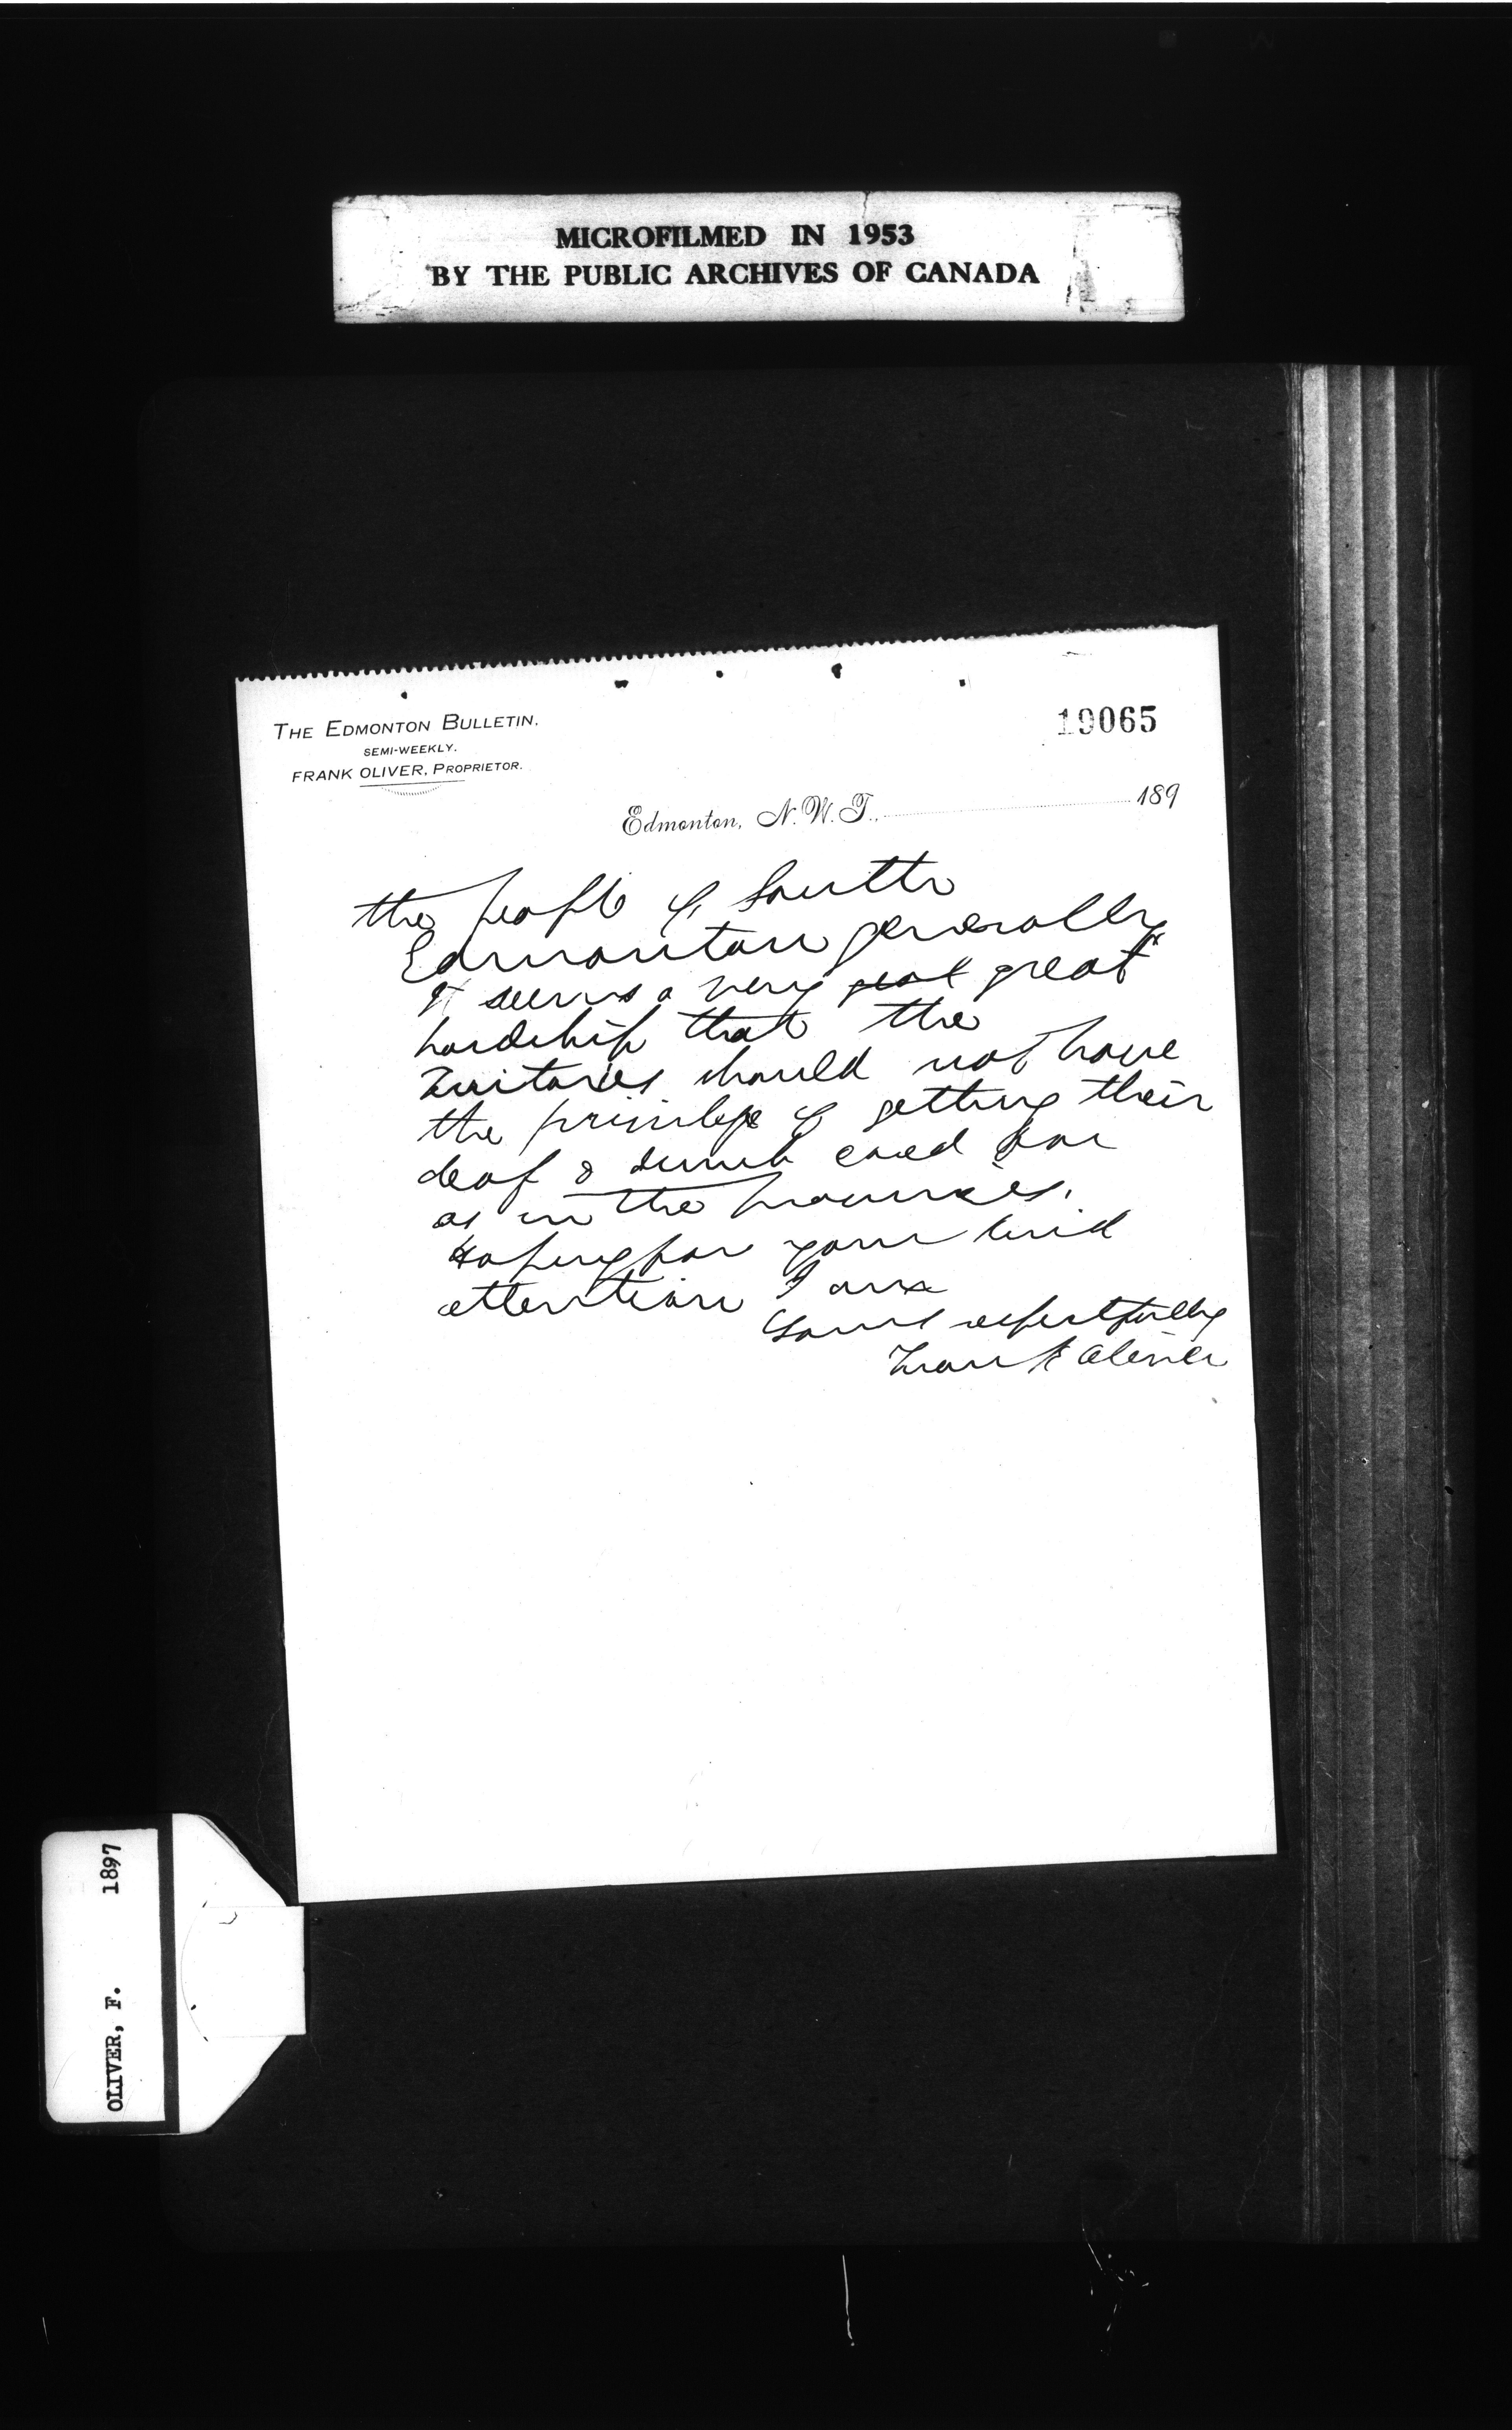 MICROFILMED IN 1953
BY THE PUBLIC ARCHIVES OF CANADA
THE EDMONTON BULLETIN.
SEMI-WEEKLY.
FRANK OLIVER, PROPRIETOR.
19065
Edmonton, N.W.T., 189
the people of South
Edmonton generally
It seems a very great
hardship that the
should not have
the privilege of getting their
deaf & dumb cared for
as in the provinces.
Hoping for your kind
attention I am
Yours respectfully
Frank Oliver
OLIVER, F. 1897